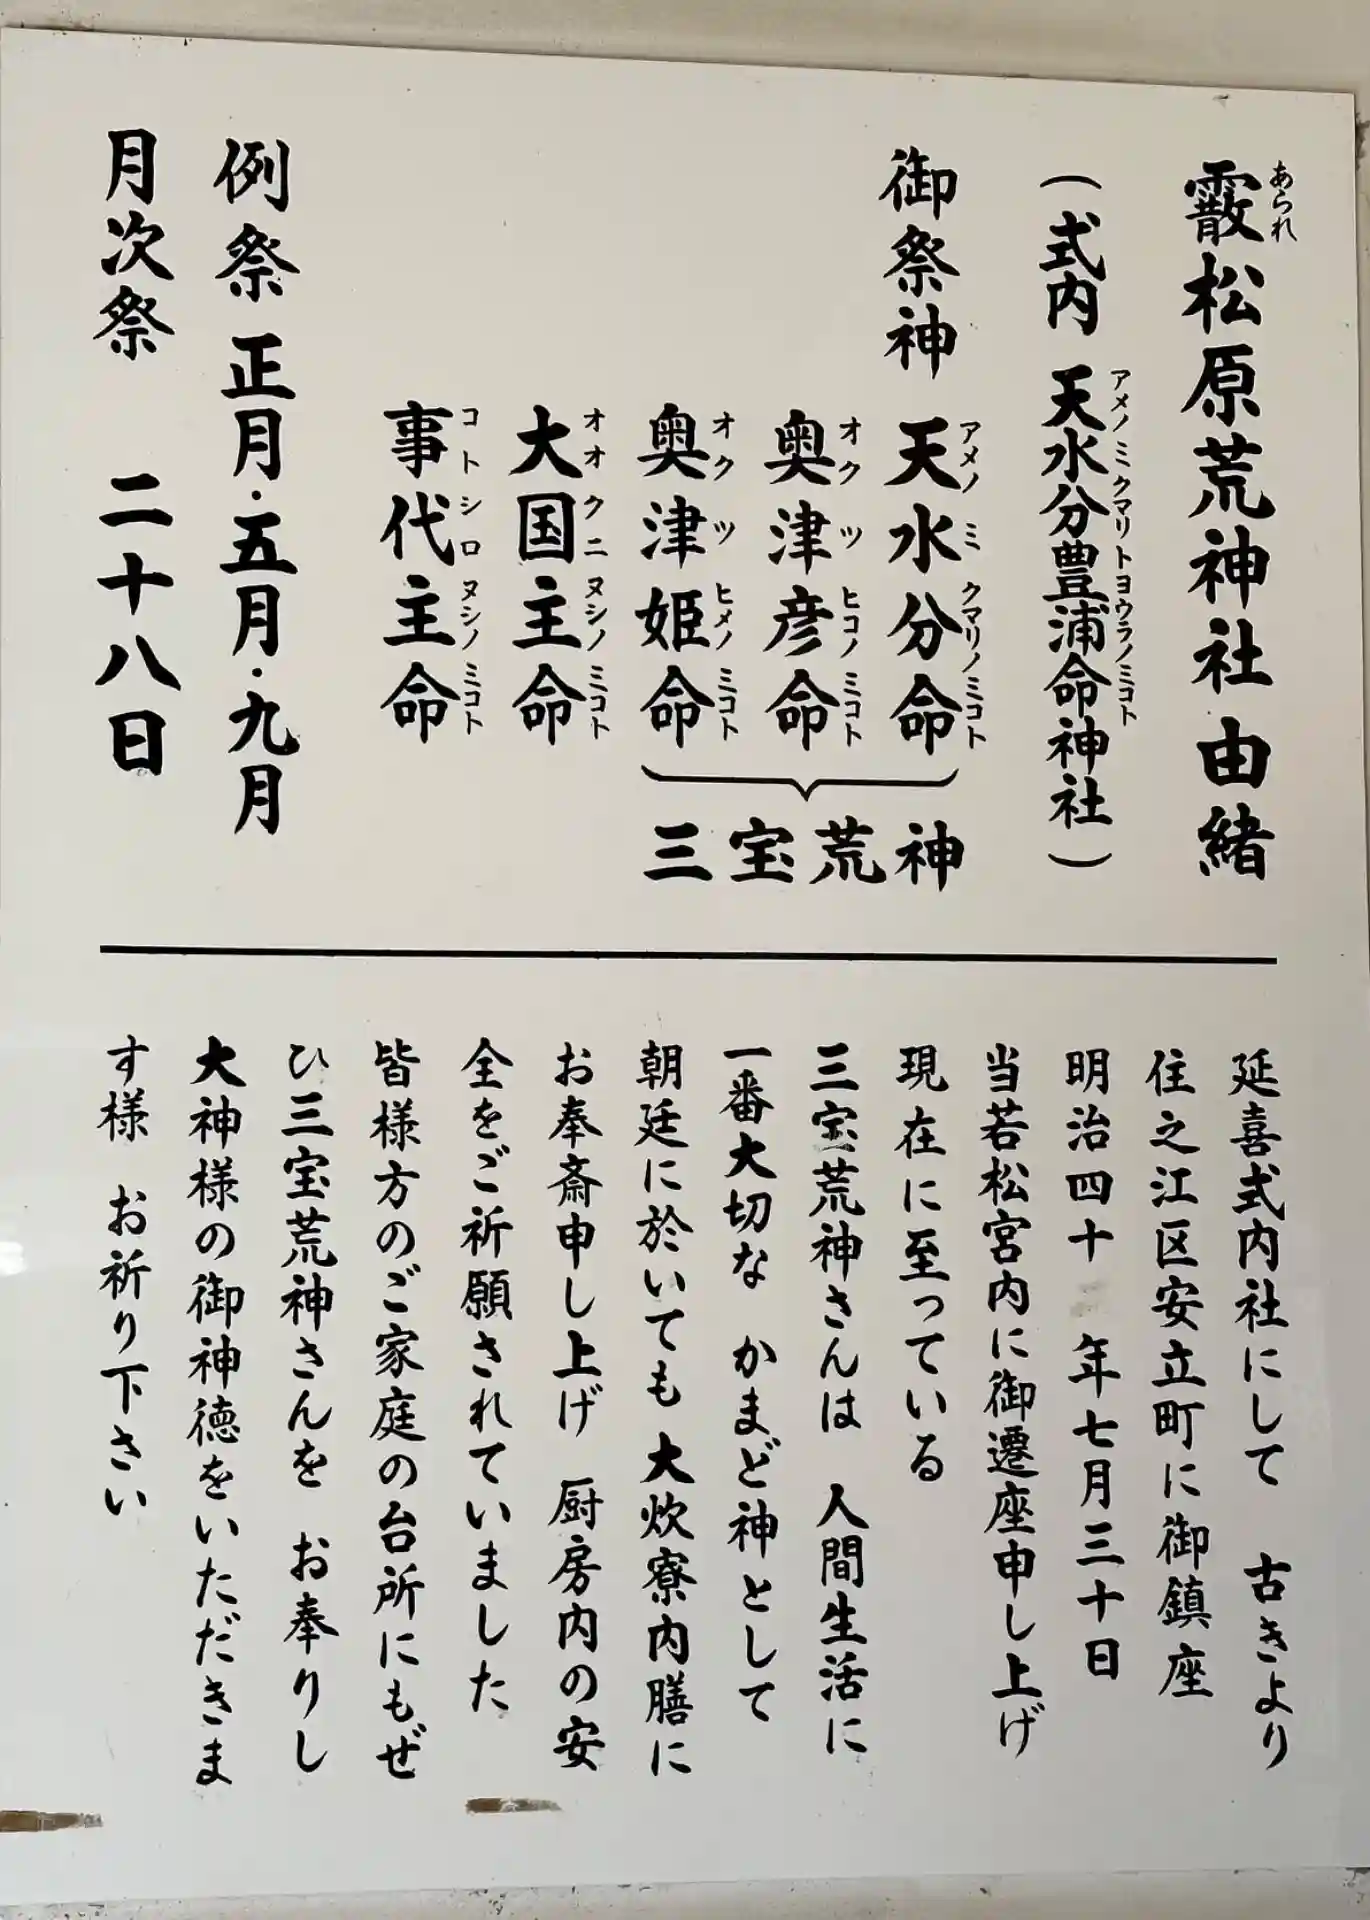 霰松原荒神社由緒
あられ
(式内 天水分豊浦命神社)
アメノミクマリトヨウラノミコト
御祭神 天水分命
アメノミクマリノミコト
奥津彦命
オクツヒコノミコト
奥津姫命
オクツヒメノミコト
三宝荒神
大国主命
オオクニヌシノミコト
事代主命
コトシロヌシノミコト
例祭 正月・五月・九月
月次祭 二十八日
延喜式内社にして 古きより
住之江区安立町に御鎮座
明治四十 年七月三十日
当若松宮内に御遷座申し上げ
現在に至っている
三宝荒神さんは 人間生活に
一番大切な かまど神として
朝廷に於いても 大炊寮内膳に
お奉斎申し上げ 厨房内の安
全をご祈願されていました
皆様方のご家庭の台所にもぜ
ひ三宝荒神さんを お奉りし
大神様の御神徳をいただきま
す様 お祈り下さい